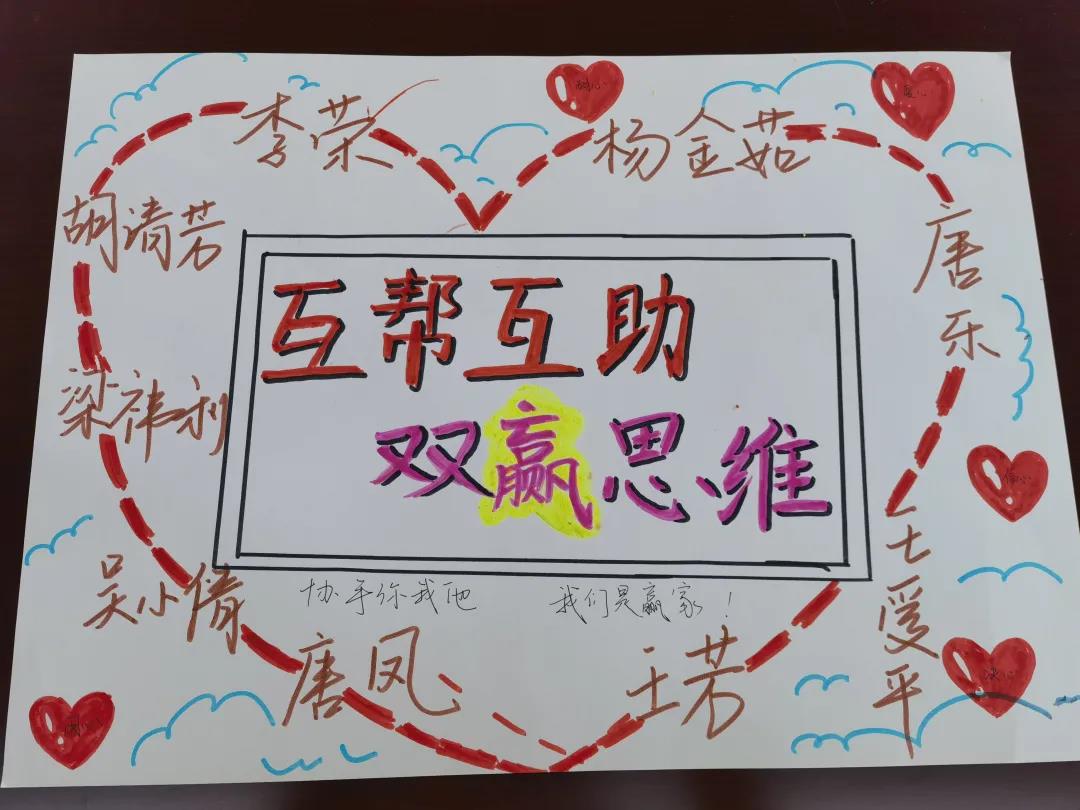 耐心
暖心
李荣
杨金茹
胡清芳
唐乐
互帮互助
双赢思维
梁祎利
吴小倩
王爱平
协手你我他 我们是赢家！
唐凤
王芳
决心